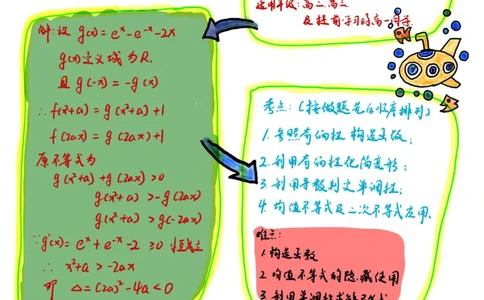 适用年级: 高二、高三
及提前学习的高一同学
解: 设 g(x) = e^x - e^-x - 2x
g(x)定义域为R.
且 g(-x) = -g(x)
∴ f(x²+a) = g(x²+a)+1
f(2ax) = g(2ax)+1
原不等式为
g(x²+a) + g(2ax) >0
g(x²+a) > -g(2ax)
g(x²+a) > g(-2ax)
∵g'(x) = e^x + e^-x - 2 ≥0 恒成立
∴ x²+a > -2ax
即 Δ = (2a)² - 4a < 0
考点: (按做题先后顺序排列)
1. 构造函数;
2. 利用奇偶性化简变形;
3. 利用导数判定单调性;
4. 均值不等式及二次不等式应用.
难点:
1. 构造函数
2. 均值不等式的隐藏使用
3. 利用单调性